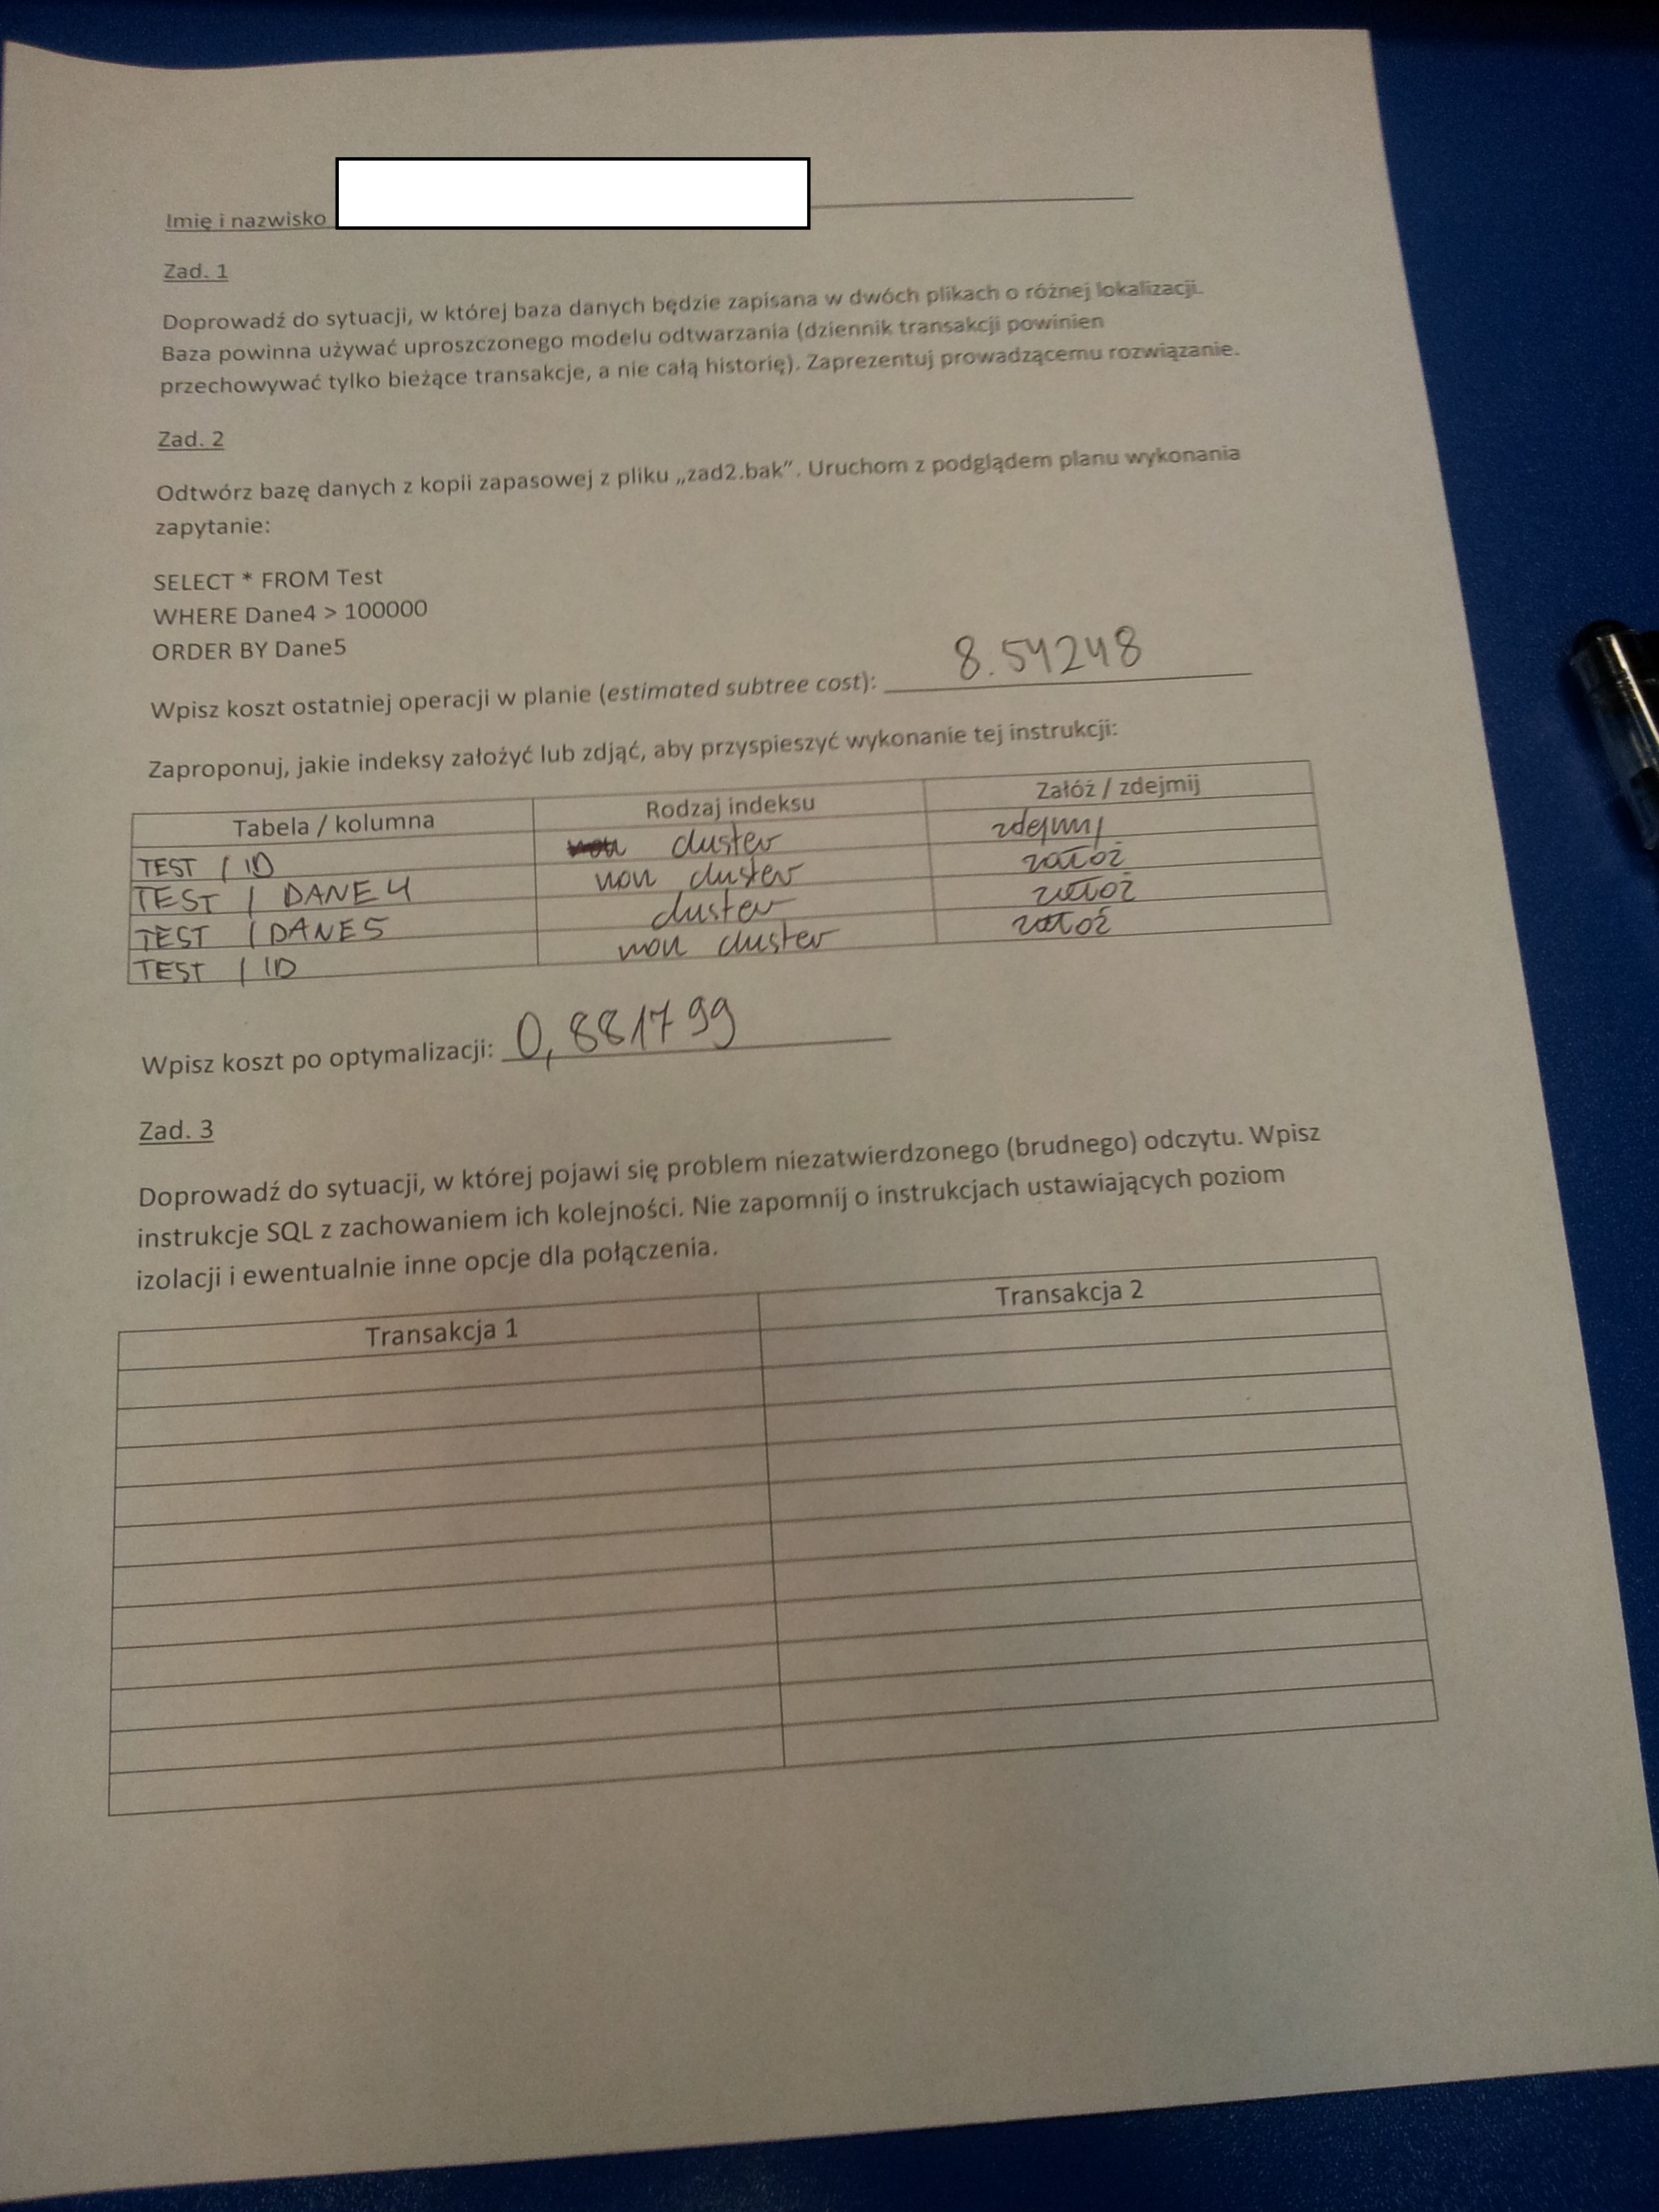 Imię i nazwisko
Zad. 1
Doprowadź do sytuacji, w której baza danych będzie zapisana w dwóch plikach o różnej lokalizacji.
Baza powinna używać uproszczonego modelu odtwarzania (dziennik transakcji powinien
przechowywać tylko bieżące transakcje, a nie całą historię). Zaprezentuj prowadzącemu rozwiązanie.
Zad. 2
Odtwórz bazę danych z kopii zapasowej z pliku „zad2.bak”. Uruchom z podglądem planu wykonania
zapytanie:
SELECT * FROM Test
WHERE Dane4 > 100000
ORDER BY Dane5
Wpisz koszt ostatniej operacji w planie (estimated subtree cost): 8.54248
Zaproponuj, jakie indeksy założyć lub zdjąć, aby przyspieszyć wykonanie tej instrukcji:
Tabela / kolumna Rodzaj indeksu Załóż / zdejmij
TEST / ID cluster zdejmij
TEST / DANE4 non cluster załóż
TEST / DANE5 cluster załóż
TEST / ID non cluster załóż
Wpisz koszt po optymalizacji: 0,881799
Zad. 3
Doprowadź do sytuacji, w której pojawi się problem niezatwierdzonego (brudnego) odczytu. Wpisz
instrukcje SQL z zachowaniem ich kolejności. Nie zapomnij o instrukcjach ustawiających poziom
izolacji i ewentualnie inne opcje dla połączenia.
Transakcja 1 Transakcja 2